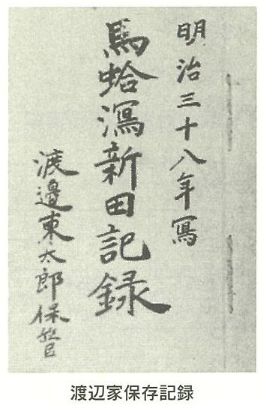 明治三十八年写
馬蛤潟新田記録
渡邊東太郎保管
渡辺家保存記録